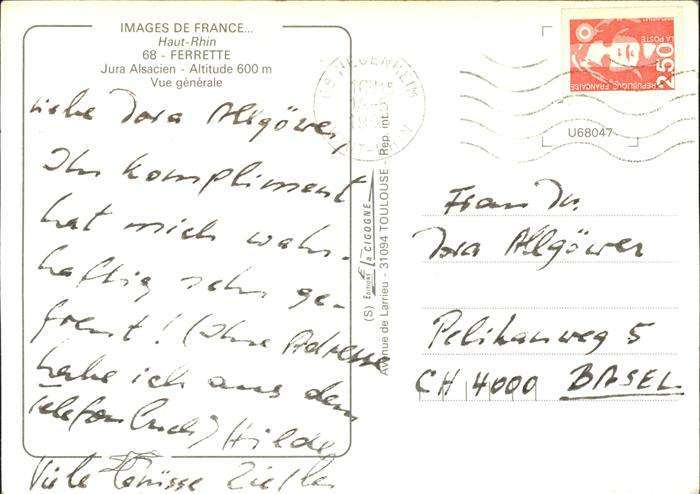 IMAGES DE FRANCE...
Haut-Rhin
68 - FERRETTE
Jura Alsacien - Altitude 600 m
Vue générale
Liebe Dora Allgöwer,
Ihr Kompliment
hat mich wahr-
haftig sehr ge-
freut! (Ihre Adresse
habe ich aus dem
Telefonbuch) Hilde
Viele Grüsse
(S) Editions La CIGOGNE
Avenue de Larrieu - 31094 TOULOUSE - Rep. int.
HEGENHEIM
2,50
LA POSTE
REPUBLIQUE FRANÇAISE
U68047
Frau Dr.
Dora Allgöwer
Pelikanweg 5
CH 4000 BASEL